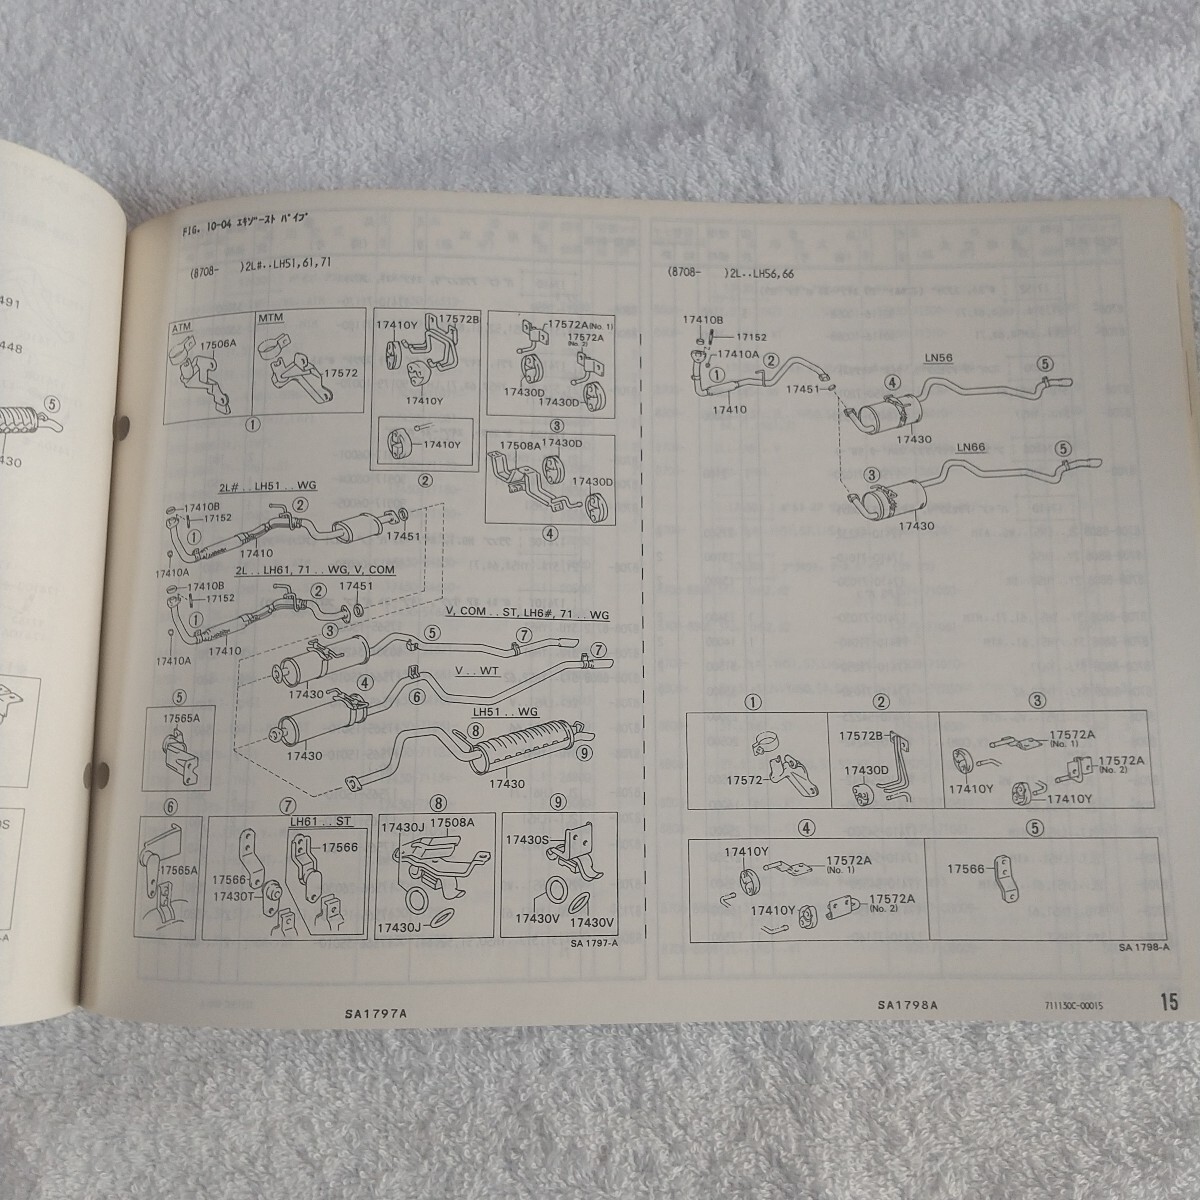 491
448
⑤
430
OS
-A
FIG. 10-04 ｴｷｿﾞｰｽﾄ ﾊﾟｲﾌﾟ
(8708- )2L#..LH51,61,71
ATM
17506A
MTM
17572
①
17410Y
17572B
17410Y
17410Y
②
17572A(No. 1)
17572A
(No. 2)
17430D
17430D
③
17508A
17430D
17430D
④
2L#..LH51..WG
17410B
②
17152
①
17451
17410
17410A
2L..LH61, 71..WG, V, COM
17410B
②
17451
17152
①
17410
17410A
V, COM..ST, LH6#, 71..WG
③
⑤
⑦
17430
V..WT
⑦
④
⑥
17430
LH51..WG
⑧
⑨
17430
⑤
17565A
⑥
17565A
⑦
LH61..ST
17566
17566
17430T
⑧
17430J
17508A
17430J
⑨
17430S
17430V
17430V
SA 1797-A
SA1797A
(8708- )2L..LH56,66
17410B
17152
17410A
②
①
17451
17410
LN56
⑤
④
17430
LN66
⑤
③
17430
①
17572
②
17572B
17430D
③
17572A
(No. 1)
17572A
(No. 2)
17410Y
17410Y
④
17410Y
17572A
(No. 1)
17410Y
17572A
(No. 2)
⑤
17566
SA 1798-A
SA1798A
711130C-00015
15